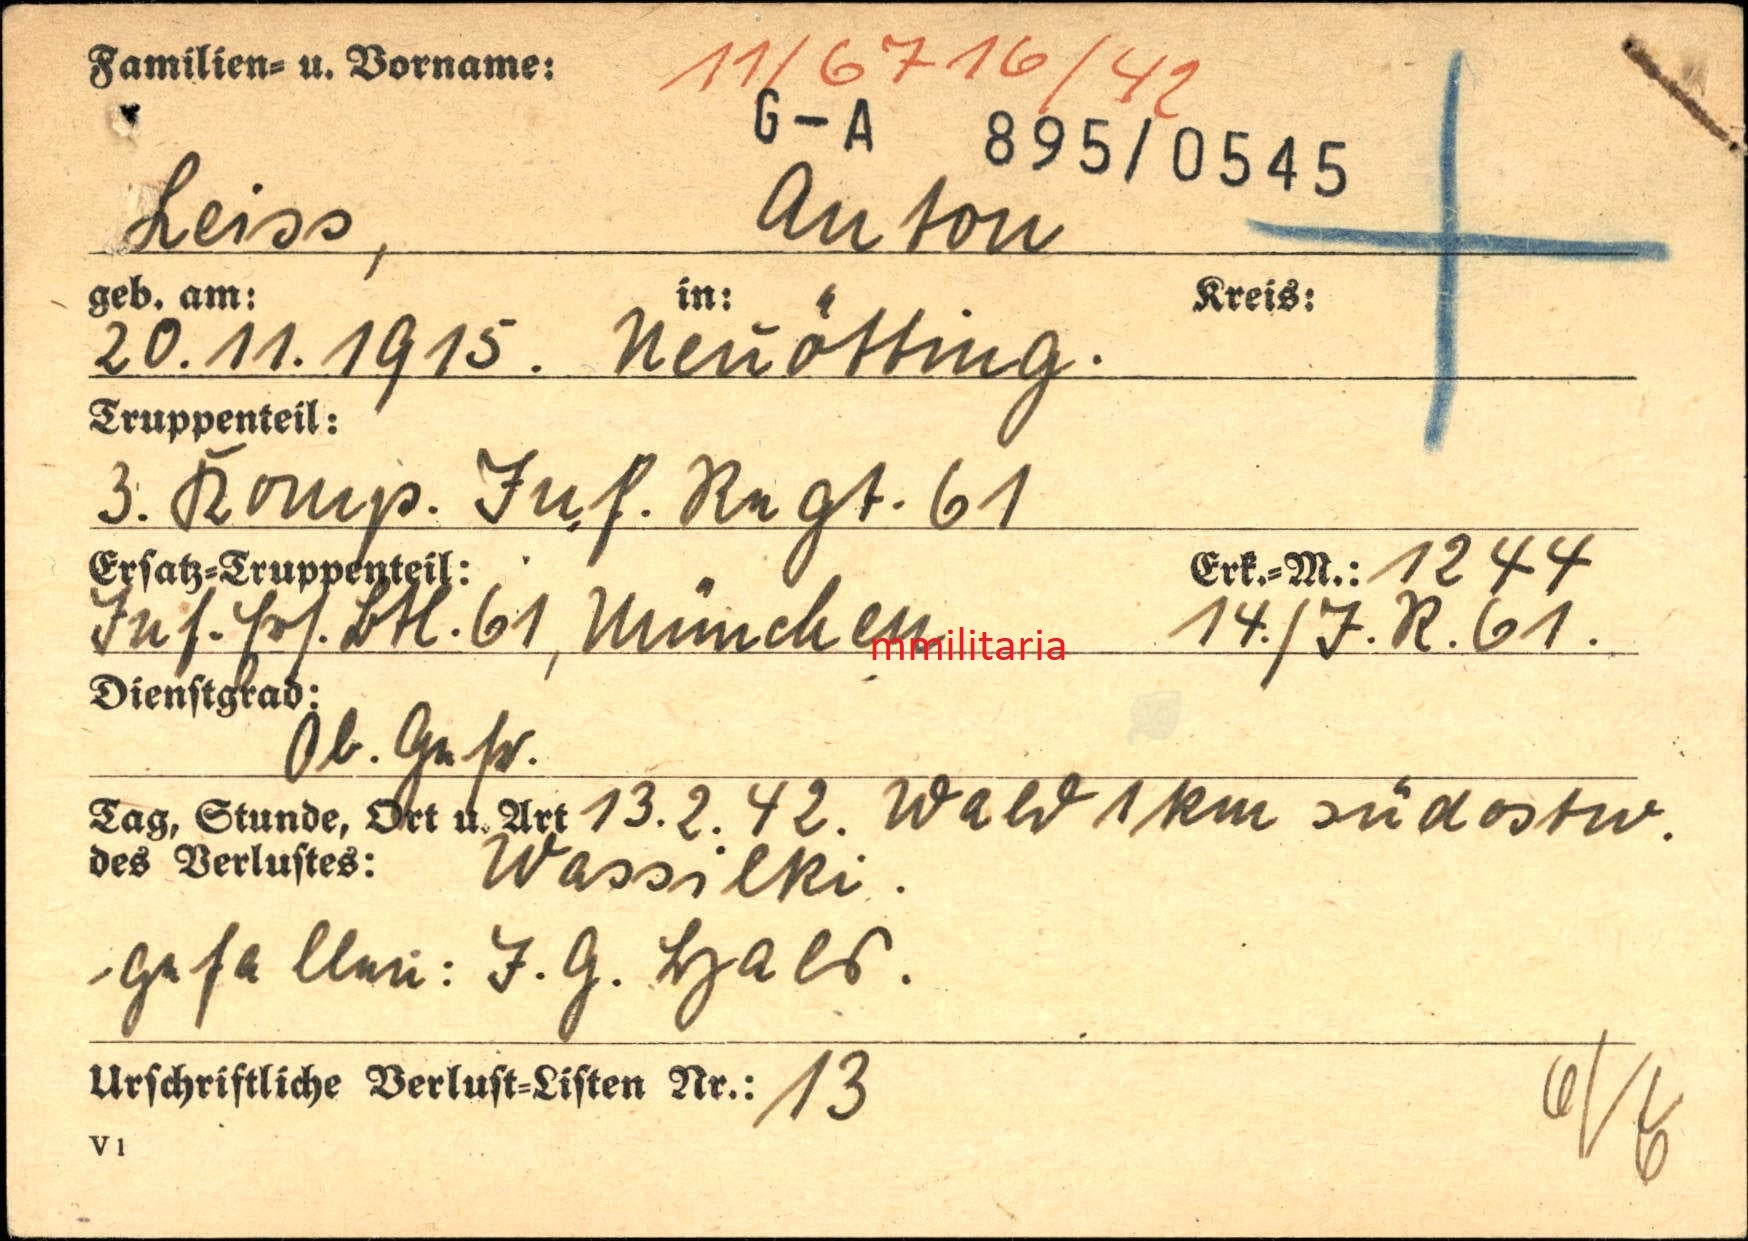 Familien- u. Vorname:
11/6716/42
G-A 895/0545
Leiss, Anton
geb. am: in: Kreis:
20.11.1915. Neuötting.
Truppenteil:
3. Komp. Inf. Regt. 61
Ersatz-Truppenteil: Erk.-M.: 1244
Inf. Ers. Btl. 61, München 14./I.R. 61.
mmilitaria
Dienstgrad:
Ob. Gefr.
Tag, Stunde, Ort u. Art 13.2.42. Wald 1 km südostw.
des Verlustes: Wassilki.
gefallen: I.G. Hals.
Urschriftliche Verlust-Listen Nr.: 13
V 1